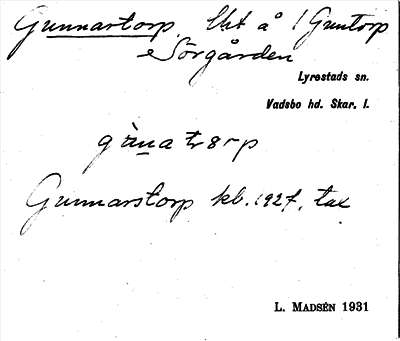 Gunnartorp. Uht å 1 Guntorp
e Sörgården
Lyrestads sn.
Vadsbo hd. Skar. l.
Gunnarstorp kb. 1927, tax
L. MADSÉN 1931